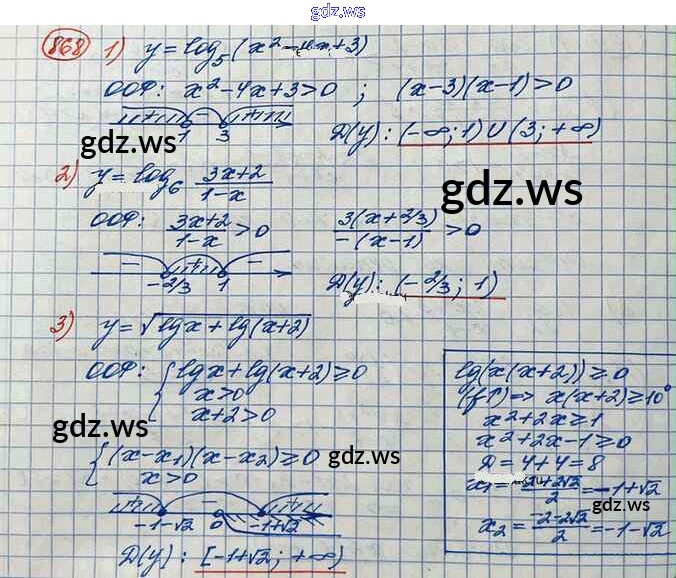 gdz.ws
868 1) y = log₅(x² - 4x + 3)
ООФ: x² - 4x + 3 > 0 ; (x-3)(x-1) > 0
+ - +
1 3
D(y): (-∞; 1) U (3; +∞)
2) y = log₆ (3x+2)/(1-x)
gdz.ws
ООФ: (3x+2)/(1-x) > 0 3(x+2/3)/(-(x-1)) > 0
- + -
-2/3 1
D(y): (-2/3; 1)
3) y = √(lgx + lg(x+2))
ООФ: { lgx + lg(x+2) ≥ 0
x > 0
x+2 > 0
gdz.ws
{ (x-x₁)(x-x₂) ≥ 0
x > 0
gdz.ws
+ - +
-1-√2 0 -1+√2
D(y): [-1+√2; +∞)
lg(x(x+2)) ≥ 0
(f↑) => x(x+2) ≥ 10⁰
x² + 2x ≥ 1
x² + 2x - 1 ≥ 0
D = 4 + 4 = 8
x₁ = (-2+2√2)/2 = -1+√2
gdz.ws
x₂ = (-2-2√2)/2 = -1-√2
gdz.ws